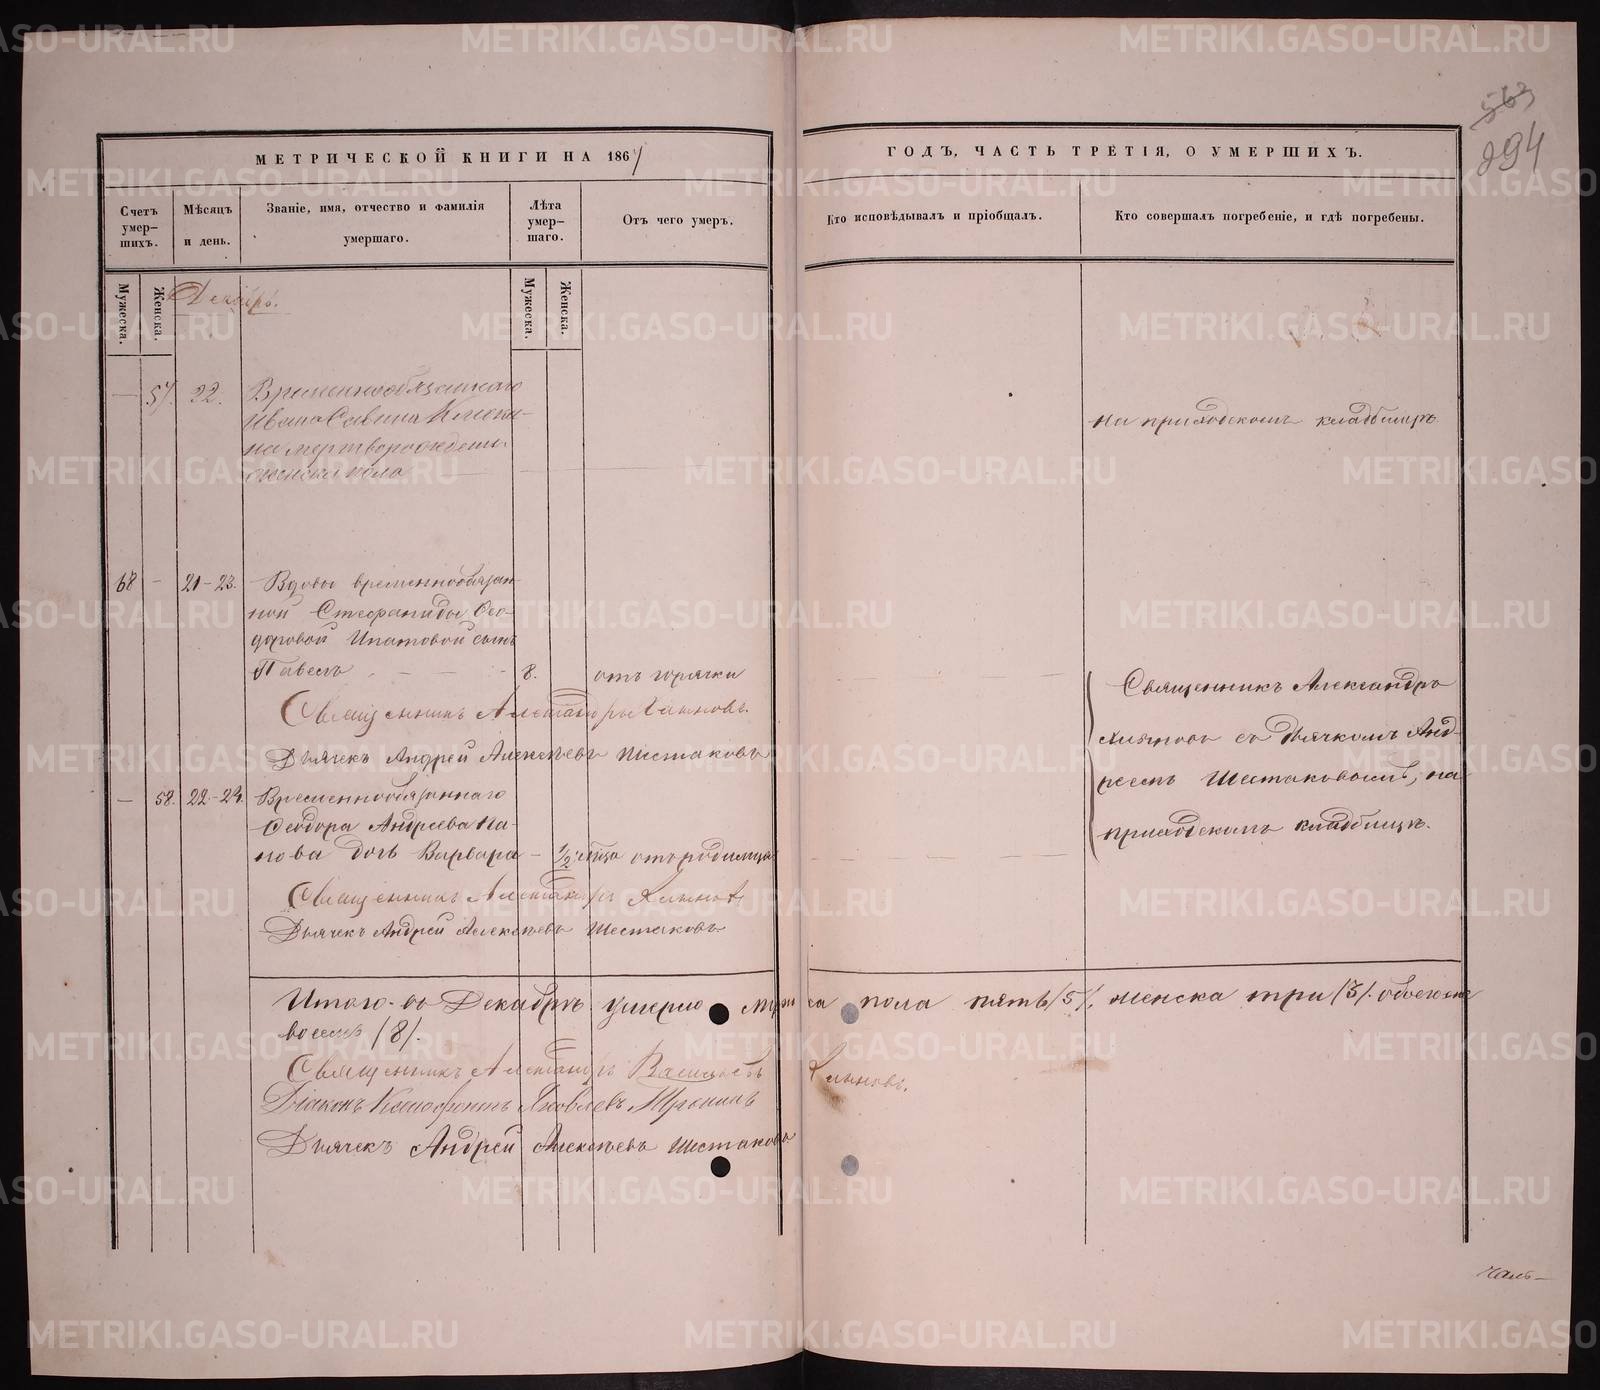 563
294
МЕТРИЧЕСКОЙ КНИГИ НА 1867
ГОДЪ, ЧАСТЬ ТРЕТІЯ, О УМЕРШИХЪ.
Счетъ умер-шихъ.
Мѣсяцъ и день.
Званіе, имя, отчество и фамилія умершаго.
Лѣта умер-шаго.
Отъ чего умеръ.
Кто исповѣдывалъ и пріобщалъ.
Кто совершалъ погребеніе, и гдѣ погребены.
Мужеска.
Женска.
Мужеска.
Женска.
Декабрь.
— 57. 22. Временнообязаннаго
Ивана Савина
на мертворожденн
женска пола
На приходскомъ кладбищѣ.
68 — 21-23. Вдовы временнообязан-
ной Стефаниды Ѳео-
доровой Ипатовой сынъ
Павелъ 8. отъ горячки
Священникъ Александръ
Дьячекъ Андрей Алексѣевъ Шестаковъ
— 58. 22-24. Временнообязаннаго
Ѳеодора Андреева Па-
нова дочь Варвара — 1/2 отъ родимца
Священникъ Александръ
съ дьячкомъ Анд-
реемъ Шестаковымъ, на
приходскомъ кладбищѣ.
Священникъ Александръ
Дьячекъ Андрей Алексѣевъ Шестаковъ
Итого въ Декабрѣ умерло мужеска пола пять /5/, женска три /3/. обоего же
восемь /8/.
Священникъ Александръ Васильевъ
Діаконъ Ксенофонтъ Яковлевъ
Дьячекъ Андрей Алексѣевъ Шестаковъ
METRIKI.GASO-URAL.RU